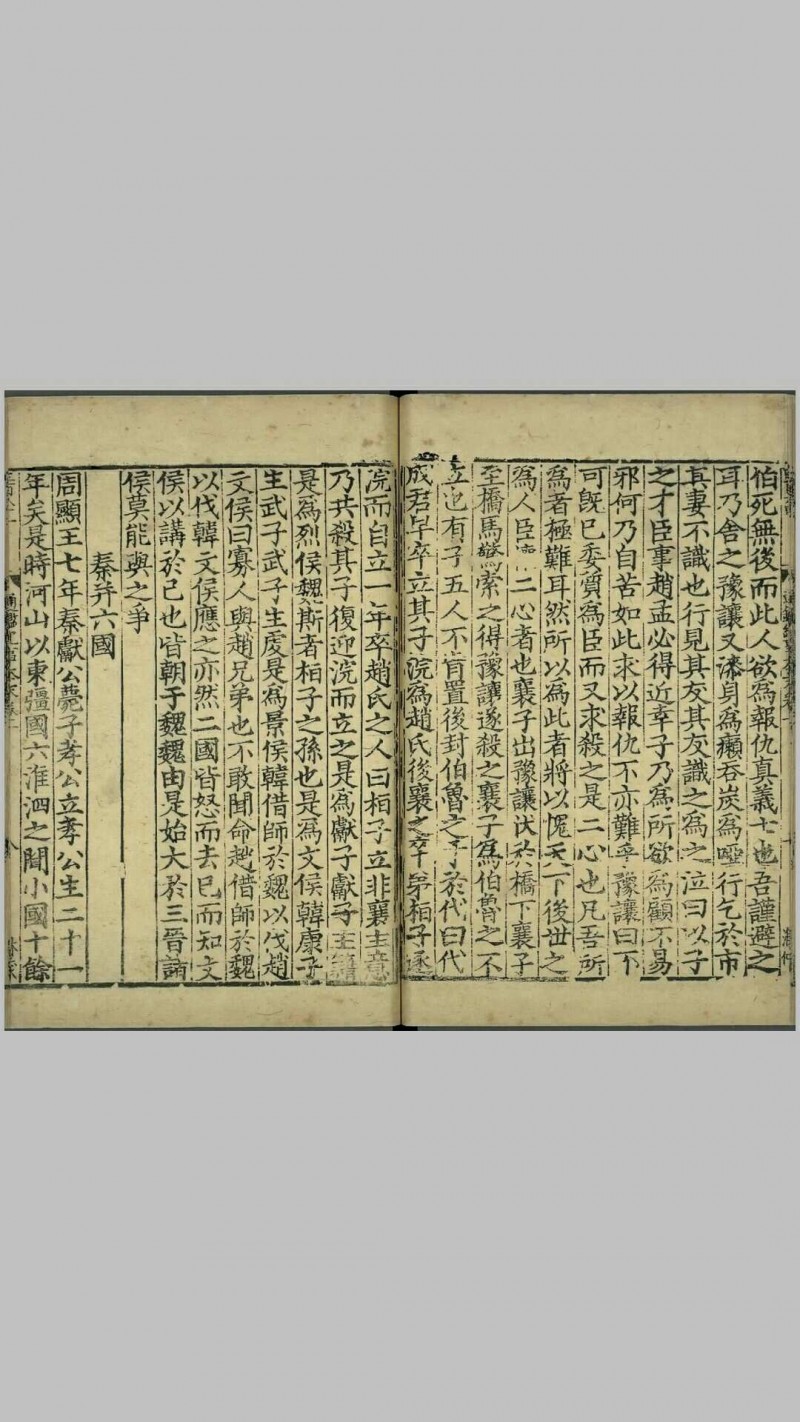 伯死無後而此人欲為報仇真義士也吾謹避之
耳乃舍之豫讓又漆身為癩吞炭為啞行乞於市
其妻不識也行見其友其友識之為之泣曰以子
之才臣事趙孟必得近幸子乃為所欲為顧不易
邪何乃自苦如此求以報仇不亦難乎豫讓曰不
可旣已委質為臣而又求殺之是二心也凡吾所
為者極難耳然所以為此者將以愧天下後世之
為人臣 二心者也襄子出豫讓伏於橋下襄子
至橋馬驚索之得豫讓遂殺之襄子為伯魯之不
立也有子五人不肯置後封伯魯之子於代曰代
成君早卒立其子浣為趙氏後襄子卒弟桓子逐
浣而自立一年卒趙氏之人曰桓子立非襄主意
乃共殺其子復迎浣而立之是為獻子獻子生籍
是為烈侯魏斯者桓子之孫也是為文侯韓康子
生武子武子生虔是為景侯韓借師於魏以伐趙
文侯曰寡人與趙兄弟也不敢聞命趙借師於魏
以伐韓文侯應之亦然二國皆怒而去已而知文
侯以講於己也皆朝于魏魏由是始大於三晉諸
侯莫能與之爭
秦并六國
周顯王七年秦獻公薨子孝公立孝公生二十一
年矣是時河山以東彊國六淮泗之間小國十餘